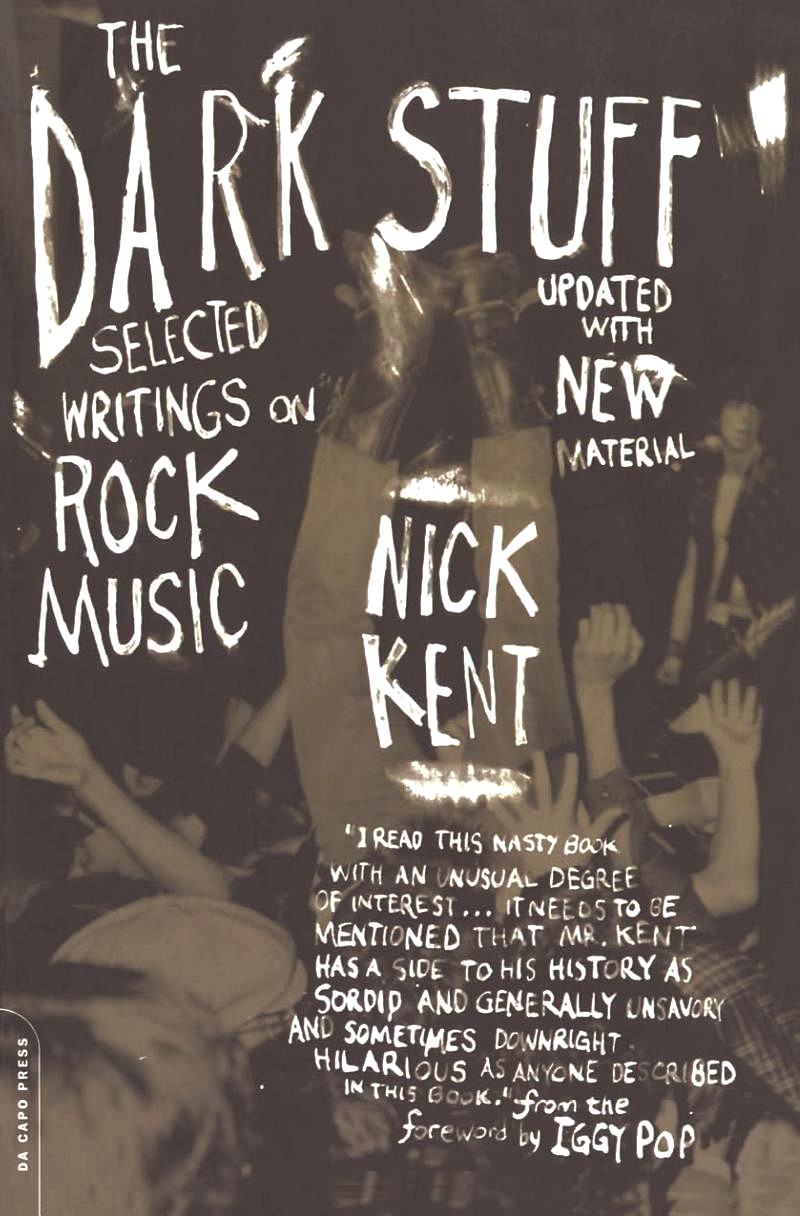 THE
DARK STUFF
SELECTED
WRITINGS ON
ROCK
MUSIC
UPDATED
WITH
NEW
MATERIAL
NICK
KENT
"I READ THIS NASTY BOOK
WITH AN UNUSUAL DEGREE
OF INTEREST... IT NEEDS TO BE
MENTIONED THAT MR. KENT
HAS A SIDE TO HIS HISTORY AS
SORDID AND GENERALLY UNSAVORY
AND SOMETIMES DOWNRIGHT
HILARIOUS AS ANYONE DESCRIBED
IN THIS BOOK." from the
foreword by IGGY POP
DA CAPO PRESS